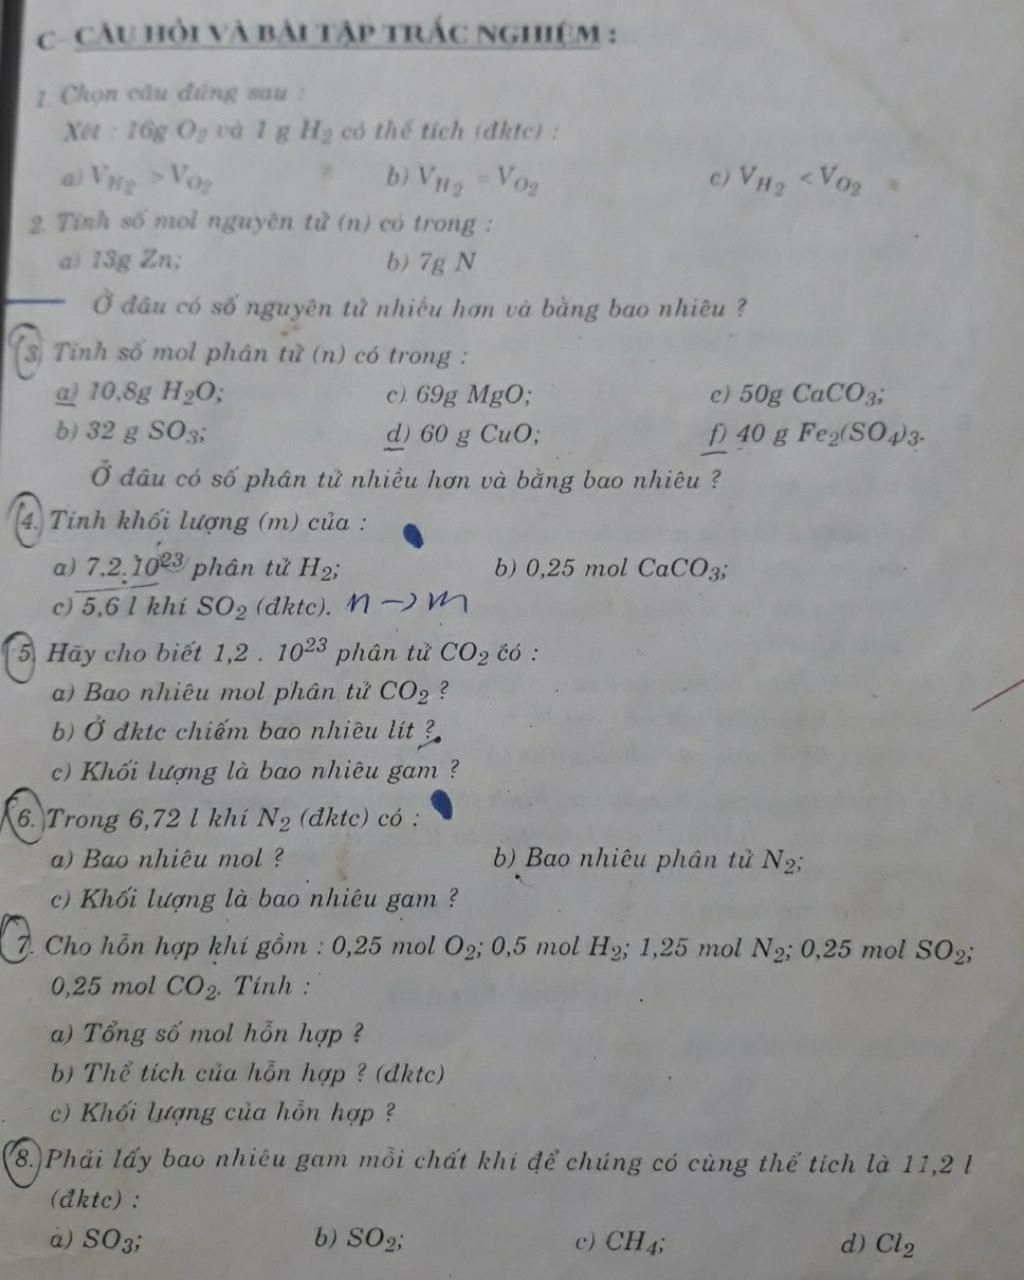 C- CÂU HỎI VÀ BÀI TẬP TRẮC NGHIỆM :
1. Chọn câu đúng sau :
Xét : 16g O₂ và 1 g H₂ có thể tích (đktc) :
a) V_H₂ > V_O₂ b) V_H₂ = V_O₂ c) V_H₂ < V_O₂
2. Tính số mol nguyên tử (n) có trong :
a) 13g Zn; b) 7g N
Ở đâu có số nguyên tử nhiều hơn và bằng bao nhiêu ?
3. Tính số mol phân tử (n) có trong :
a) 10,8g H₂O; c). 69g MgO; e) 50g CaCO₃;
b) 32 g SO₃; d) 60 g CuO; f) 40 g Fe₂(SO₄)₃.
Ở đâu có số phân tử nhiều hơn và bằng bao nhiêu ?
4. Tính khối lượng (m) của :
a) 7.2.10²³ phân tử H₂; b) 0,25 mol CaCO₃;
c) 5,6 l khí SO₂ (đktc). n → m
5. Hãy cho biết 1,2 . 10²³ phân tử CO₂ có :
a) Bao nhiêu mol phân tử CO₂ ?
b) Ở đktc chiếm bao nhiêu lít ?
c) Khối lượng là bao nhiêu gam ?
6. Trong 6,72 l khí N₂ (đktc) có :
a) Bao nhiêu mol ? b) Bao nhiêu phân tử N₂;
c) Khối lượng là bao nhiêu gam ?
7. Cho hỗn hợp khí gồm : 0,25 mol O₂; 0,5 mol H₂; 1,25 mol N₂; 0,25 mol SO₂;
0,25 mol CO₂. Tính :
a) Tổng số mol hỗn hợp ?
b) Thể tích của hỗn hợp ? (đktc)
c) Khối lượng của hỗn hợp ?
8. Phải lấy bao nhiêu gam mỗi chất khí để chúng có cùng thể tích là 11,2 l
(đktc) :
a) SO₃; b) SO₂; c) CH₄; d) Cl₂